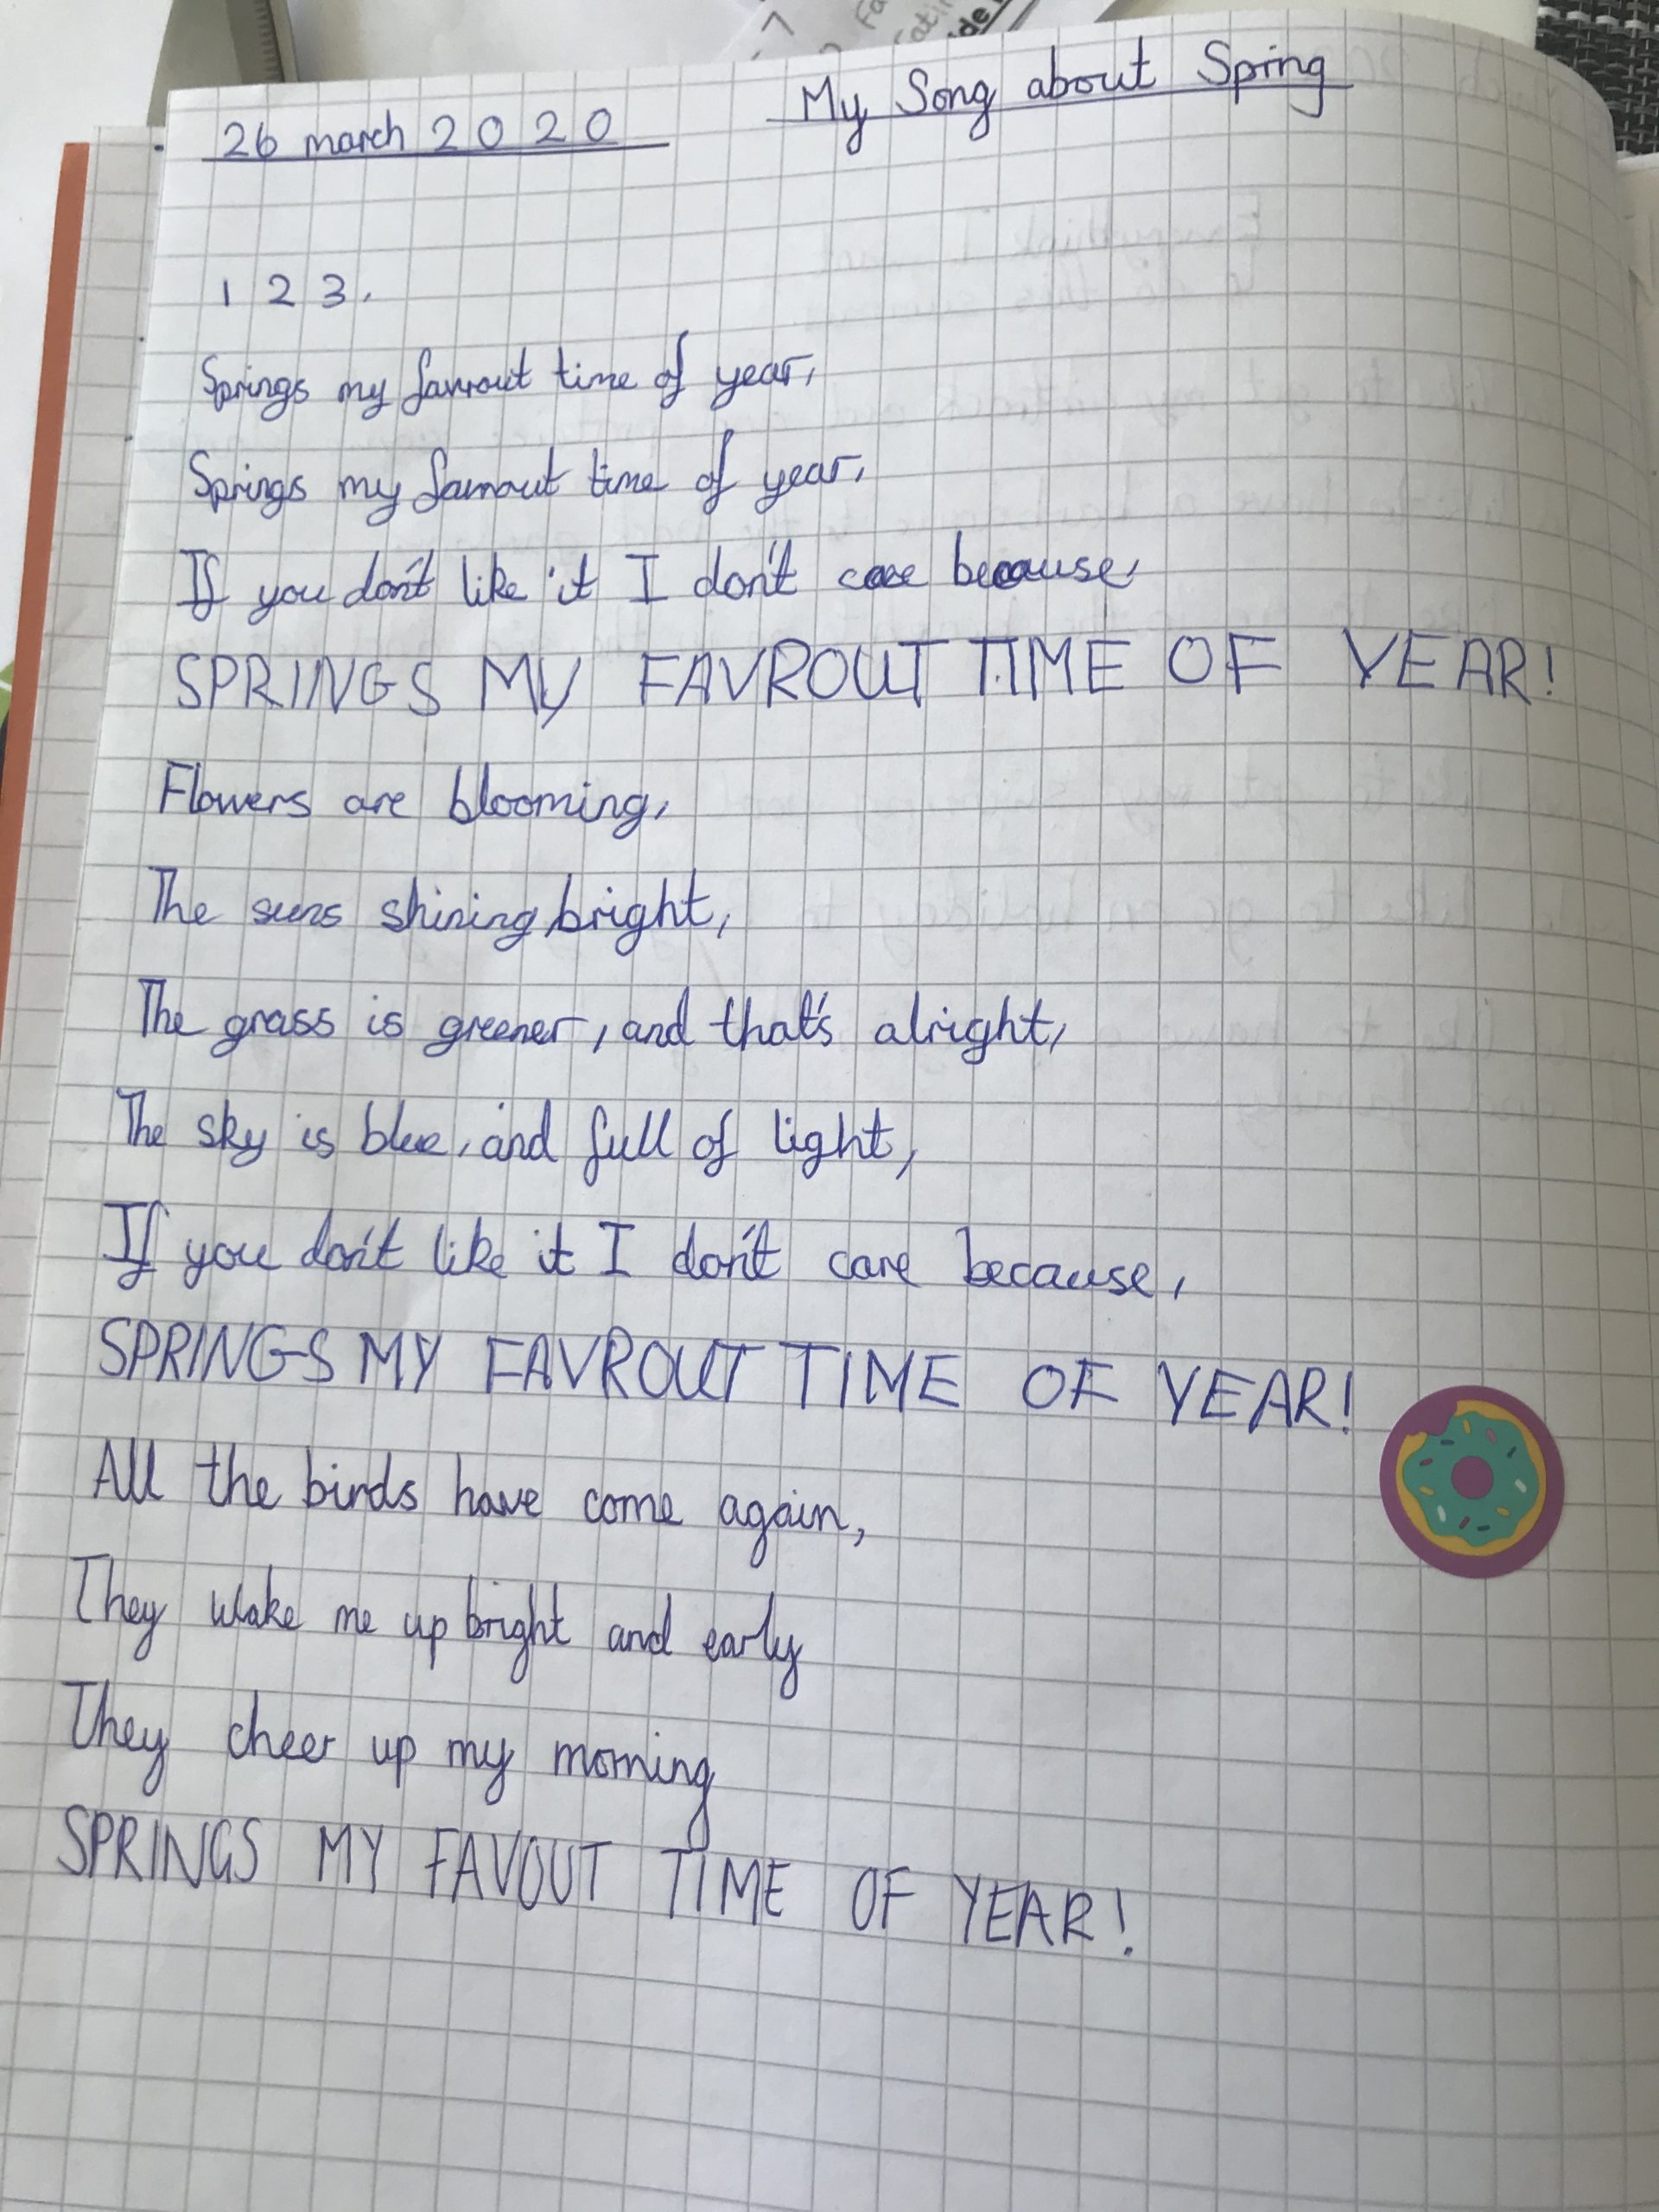 26 march 2020 My Song about Spring
1 2 3.
Springs my favrout time of year,
Springs my favrout time of year,
If you don't like it I don't care because,
SPRINGS MY FAVROUT TIME OF YEAR!
Flowers are blooming,
The suns shining bright,
The grass is greener, and that's alright,
The sky is blue, and full of light,
If you don't like it I don't care because,
SPRINGS MY FAVROUT TIME OF YEAR!
All the birds have come again,
They wake me up bright and early
They cheer up my morning
SPRINGS MY FAVOUT TIME OF YEAR!